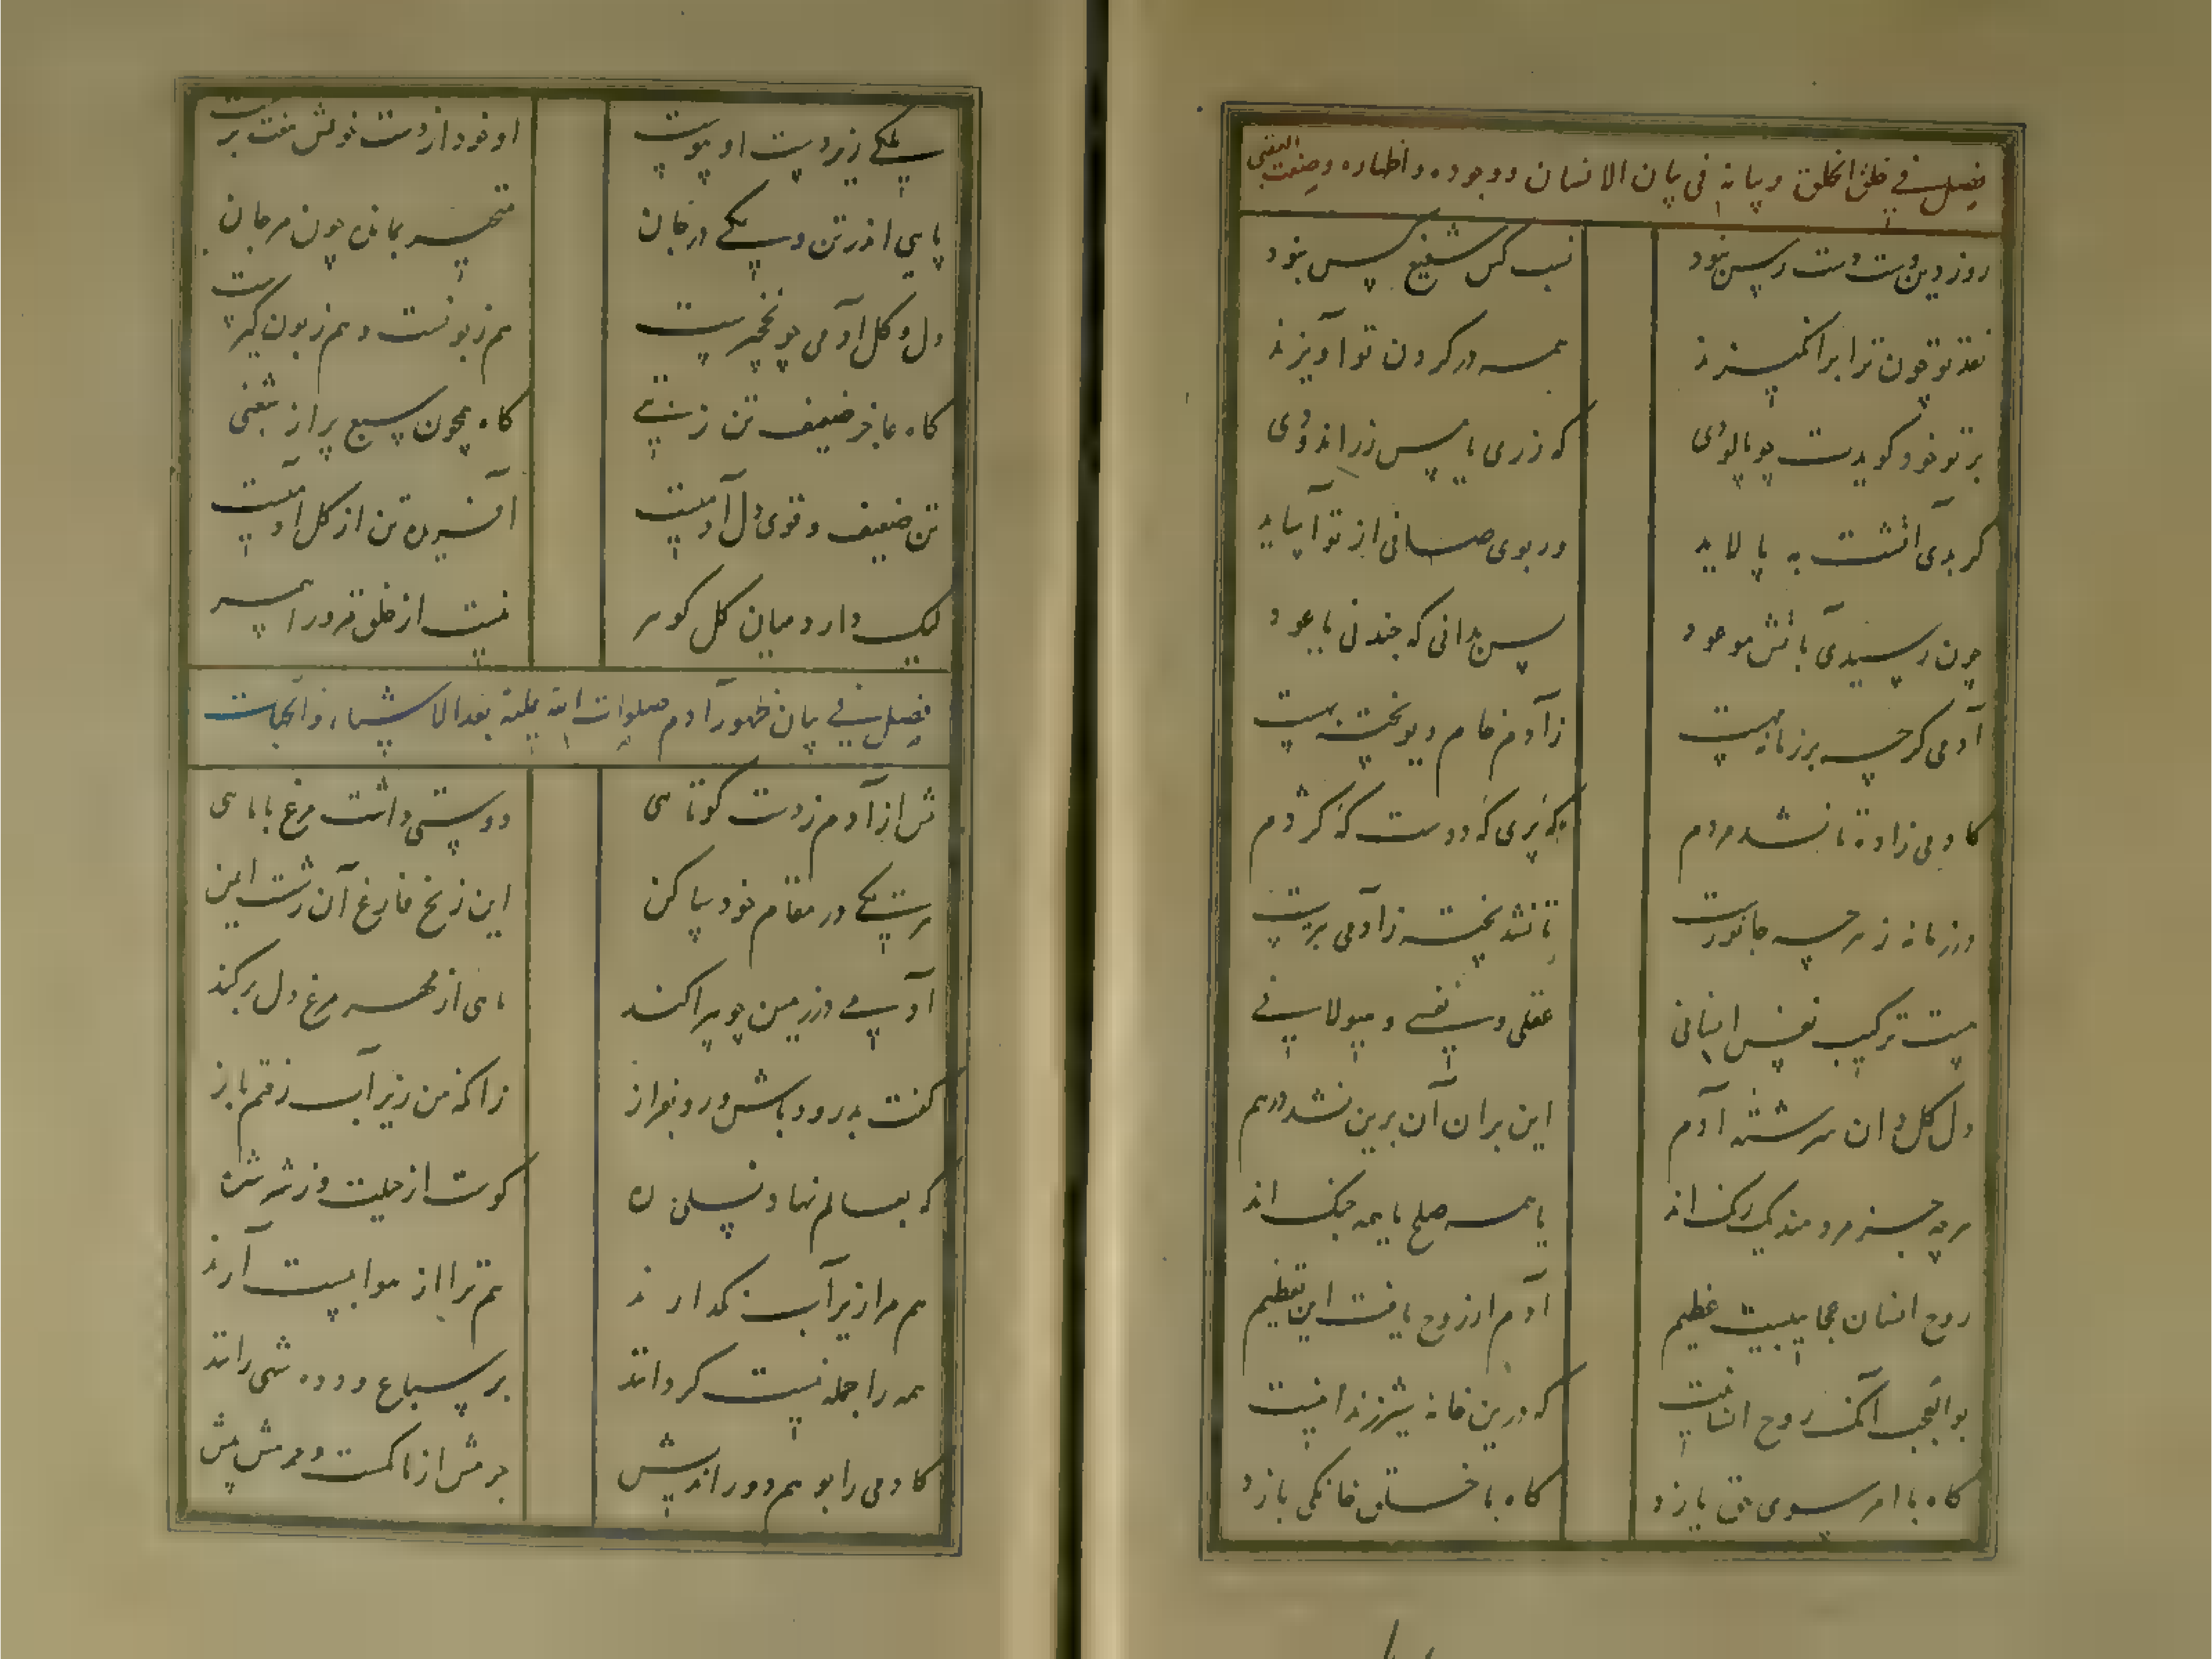 فصل فی خلق الخلق و بیانه فی بیان الانسان و وجوده و اظهاره و صنعت
روز دین دست دست رس نبود نسب کس شفیع پس نبود
نقد تو چون ترا برانگیزند همه در گردن تو آویزند
بر تو خود گویدت چو پالودی که زری یا مس زراندودی
گر بدی آتشت به پالاید ور بوی صافی از تو آساید
چون رسیدی بآتش موعود پس بدانی که چندنی یا عود
آدمی گرچه بر زمانه مهست ز آدم خام دیو پخته بهست
کادمی زاده تا نشد مردم که پری که ددست که کژدم
در زمانه ز هرچه جانورست تا نشد پخته ز آدمی بترست
هست ترکیب نفس انسانی عقلی و نفسی و هیولانی
دل گل دان سرشته آدم این بر آن آن برین نشد درهم
هرچه جز مردمند یک رنگ اند با همه صلح یا همه جنگ اند
روح انسان عجایبیست عظیم آدم از روح یافت این تعظیم
بوالعجب آنک روح انسانیست که درین خانه نیز زندانیست
گاه با امر سوی حق یازد گاه با خلق خانگی بازد
یکی زیر دست او پوست او خود از دست خویش هفت برست
پای اندر تن و یکی در جان متحیر بمانده چون مرجان
دل و گل آدمی چو نخچیرست هم زبونست و هم زبون گیرست
گاه عاجز ضعیف تن ز نیی گاه همچون سبع پر از شغبی
تن ضعیف و قوی دل آدمیست آفریده تن از گل آدمیست
لیک دارد میان گل گوهر نیست از خلق مر ورا همسر
فصل فی بیان ظهور آدم صلوات الله علیه بعد الاشیاء و
پیش از آدم ز دست کوتاهی دوستی داشت مرغ با ماهی
هر یکی در مقام خود ساکن این ز فخ فارغ آن ز شست ایمن
آدمی در زمین چو پراکند ماهی از مهر مرغ دل برکند
گفت بدرود باش و رو بفراز زانکه من زیر آب رفتم باز
که بعالم نهاد نسلی ره کوست از حیلت و ز شر شره
هم مرا زیر آب نگذارند هم ترا از هوا بپست آرند
همه را جمله نیست گرداند بر سباع و دده شهی راند
کادمی را بوهم دور اندیش هرمش از ماکمست و همش بیش